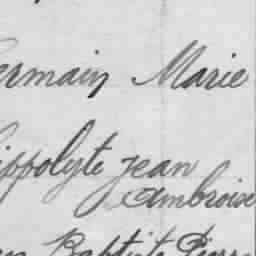 ermain Marie
ippolyte Jean
Ambroise
Baptiste Pierr